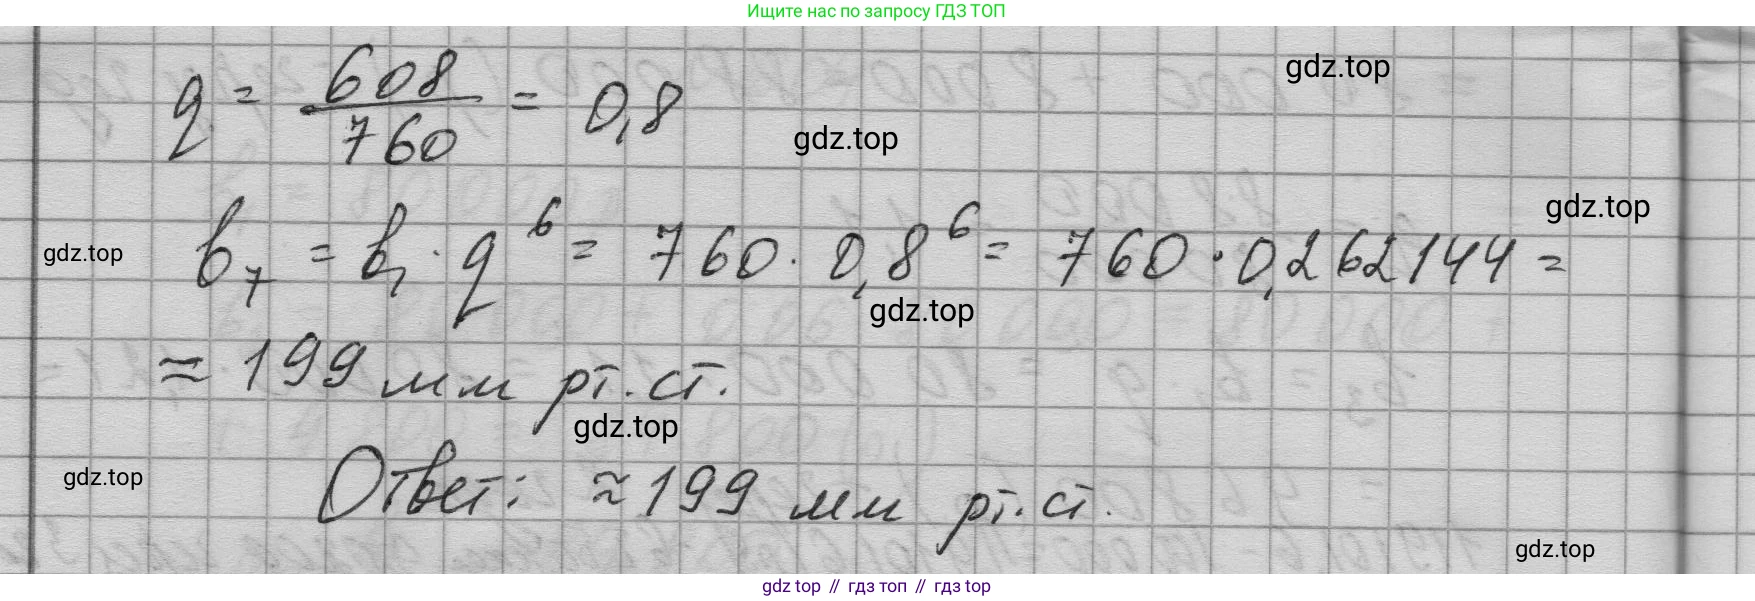 Ищите нас по запросу ГДЗ ТОП
gdz.top
q = 608/760 = 0,8
gdz.top
gdz.top
gdz.top
b₇ = b₁ · q⁶ = 760 · 0,8⁶ = 760 · 0,262144 =
gdz.top
≈ 199 мм рт. ст.
gdz.top
gdz.top
Ответ: ≈ 199 мм рт. ст.
gdz.top
gdz top // гдз топ // гдз top